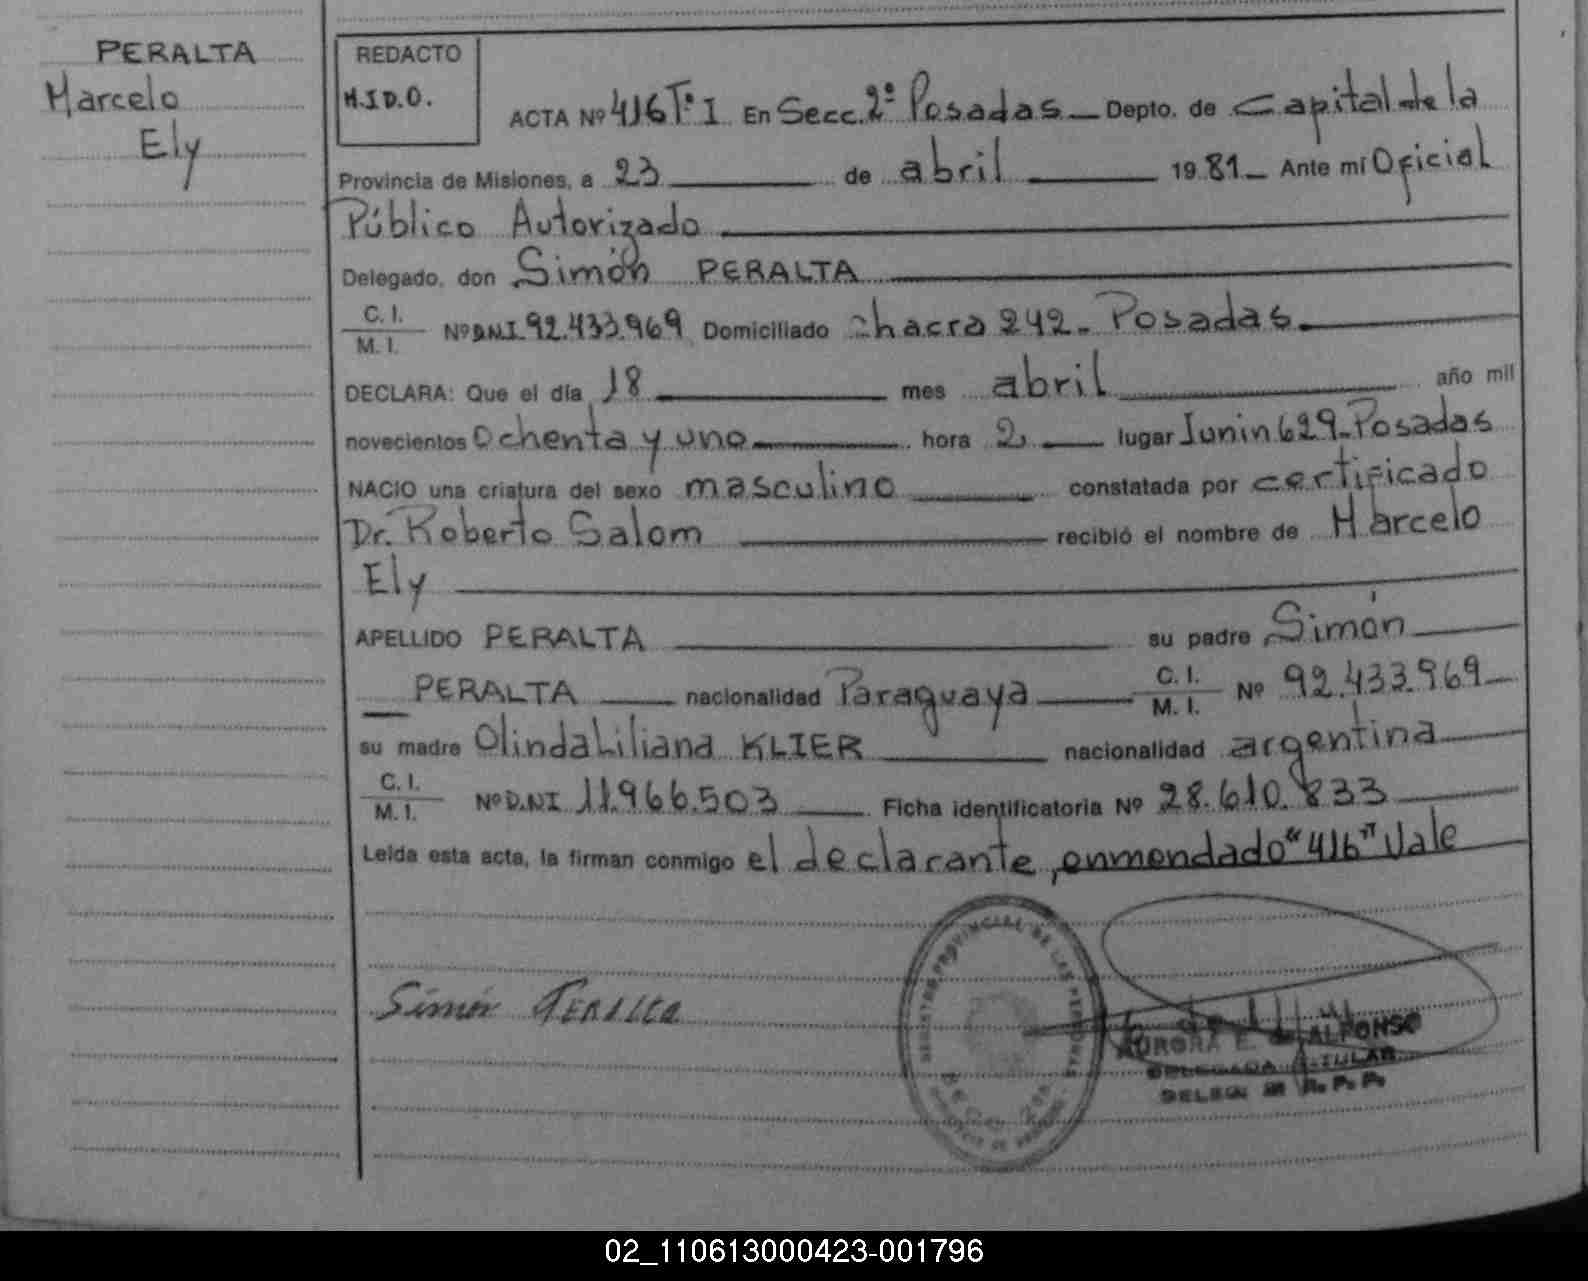 PERALTA
Marcelo
Ely
REDACTO
M.I.D.O.
ACTA Nº 416 Tº I En Secc. 2º Posadas Depto. de Capital de la
Provincia de Misiones, a 23 de abril 1981 Ante mí Oficial
Público Autorizado
Delegado, don Simón PERALTA
C. I.
M. I. Nº D.N.I. 92.433.969 Domiciliado chacra 242 - Posadas
DECLARA: Que el día 18 mes abril año mil
novecientos Ochenta y uno hora 2 lugar Junin 629 - Posadas
NACIO una criatura del sexo masculino constatada por certificado
Dr. Roberto Salom recibió el nombre de Marcelo
Ely
APELLIDO PERALTA su padre Simón
PERALTA nacionalidad Paraguaya C. I.
M. I. Nº 92.433.969
su madre Olinda Liliana KLIER nacionalidad argentina
C. I.
M. I. Nº D.NI 11.966.503 Ficha identificatoria Nº 28.610.833
Leída esta acta, la firman conmigo el declarante, enmendado "416" Vale
Simón PERALTA
REGISTRO PROVINCIAL DE LAS PERSONAS
AURORA E. de ALFONSO
DELEGADA TITULAR
R. P. P.
02_110613000423-001796